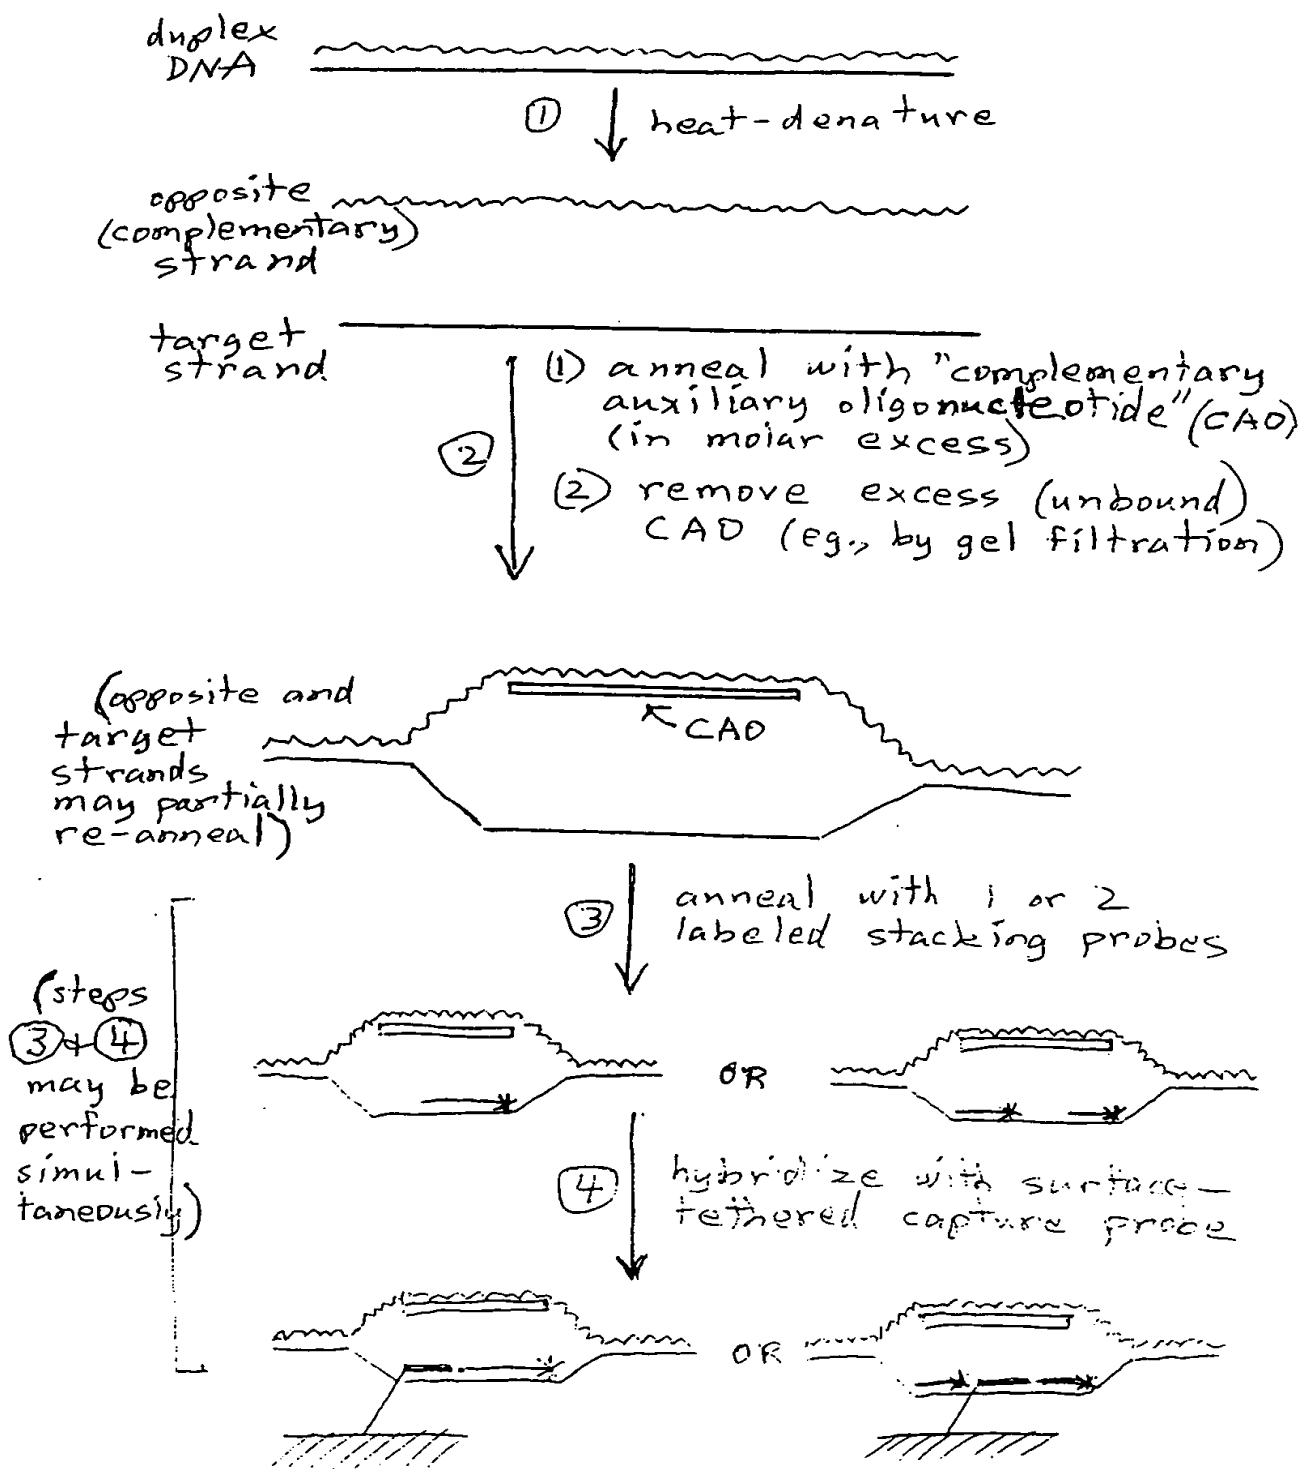 duplex
DNA
① heat-denature
opposite
(complementary)
strand
target
strand
② (1) anneal with "complementary
auxiliary oligonucleotide" (CAO)
(in molar excess)
(2) remove excess (unbound)
CAO (eg., by gel filtration)
(opposite and
target
strands
may partially
re-anneal)
CAO
③ anneal with 1 or 2
labeled stacking probes
(steps
③ + ④
may be
performed
simul-
taneously)
OR
④ hybridize with surface-
tethered capture probe
OR